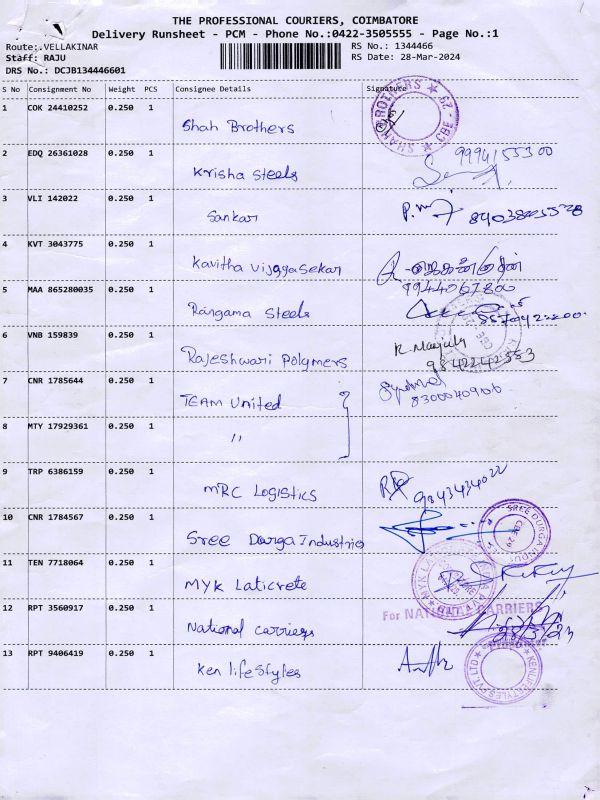 THE PROFESSIONAL COURIERS, COIMBATORE
Delivery Runsheet - PCM - Phone No.:0422-3505555 - Page No.:1
Route:.VELLAKINAR
RS No.: 1344466
Staff: RAJU
RS Date: 28-Mar-2024
DRS No.: DCJB134446601
S No Consignment No Weight PCS Consignee Details Signature
1 COK 24410252 0.250 1 Shah Brothers
SHAH BROTHERS ★ CBE - 29 ★
2 EDQ 26361028 0.250 1 Krisha Steels
3 VLI 142022 0.250 1 Sankar
4 KVT 3043775 0.250 1 Kavitha Vijayasekar
5 MAA 865280035 0.250 1 Rangama Steels
6 VNB 159839 0.250 1 Rajeshwari Polymers R. Manjula
9842242553
7 CNR 1785644 0.250 1 TEAM United
8 MTY 17929361 0.250 1 "
9 TRP 6386159 0.250 1 MRC Logistics 9843434022
10 CNR 1784567 0.250 1 Sree Durga Industrie
SREE DURGA INDUS
11 TEN 7718064 0.250 1 MYK Laticrete
12 RPT 3560917 0.250 1 National carriers For NATIONAL CARRIERS
13 RPT 9406419 0.250 1 Ken lifestyles